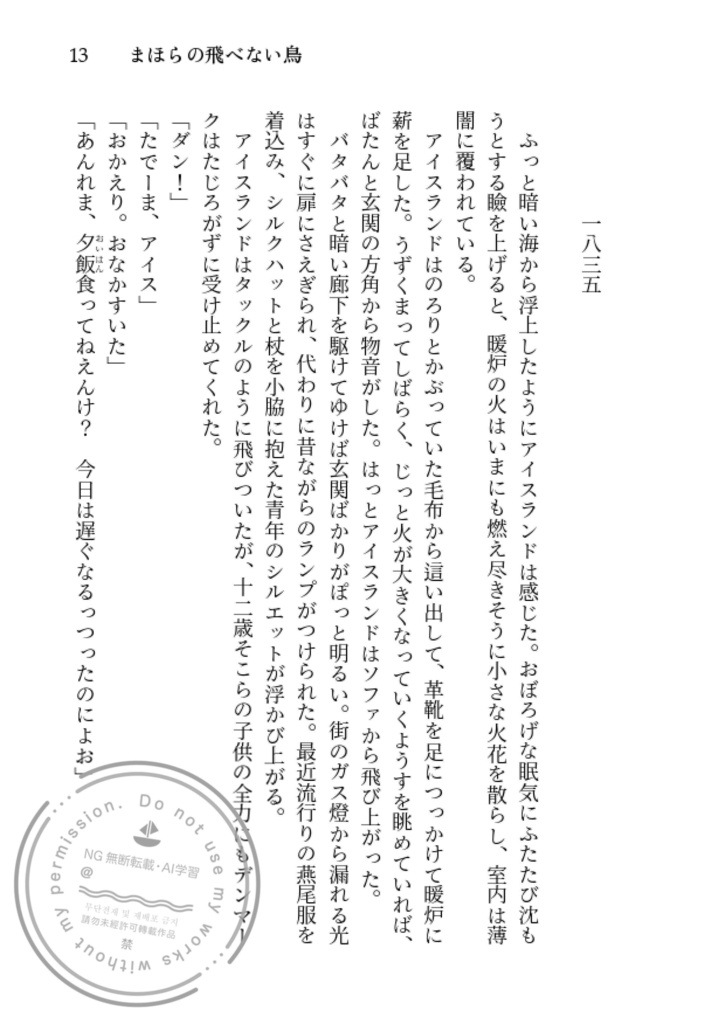 13 まほらの飛べない鳥
一八三五
ふっと暗い海から浮上したようにアイスランドは感じた。おぼろげな眠気にふたたび沈も
うとする瞼を上げると、暖炉の火はいまにも燃え尽きそうに小さな火花を散らし、室内は薄
闇に覆われている。
アイスランドはのろりとかぶっていた毛布から這い出して、革靴を足につっかけて暖炉に
薪を足した。うずくまってしばらく、じっと火が大きくなっていくようすを眺めていれば、
ばたんと玄関の方角から物音がした。はっとアイスランドはソファから飛び上がった。
バタバタと暗い廊下を駆けてゆけば玄関ばかりがぽっと明るい。街のガス燈から漏れる光
はすぐに扉にさえぎられ、代わりに昔ながらのランプがつけられた。最近流行りの燕尾服を
着込み、シルクハットと杖を小脇に抱えた青年のシルエットが浮かび上がる。
アイスランドはタックルのように飛びついたが、十二歳そこらの子供の全力にもデンマー
クはたじろがずに受け止めてくれた。
「ダン！」
「たでーま、アイス」
「おかえり。おなかすいた」
「あんれま、夕飯食ってねえんけ？　今日は遅ぐなるっつったのによお」
おいはん
Do not use my works without my permission.
NG 無断転載・AI学習
@
무단전재 및 재배포 금지
請勿未經許可轉載作品
禁